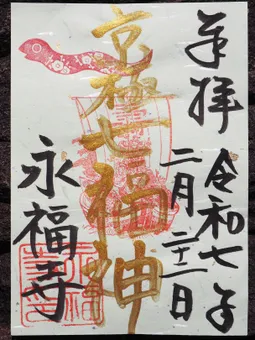 奉拝
令和七年
二月二十二日
京極七福神
永福寺